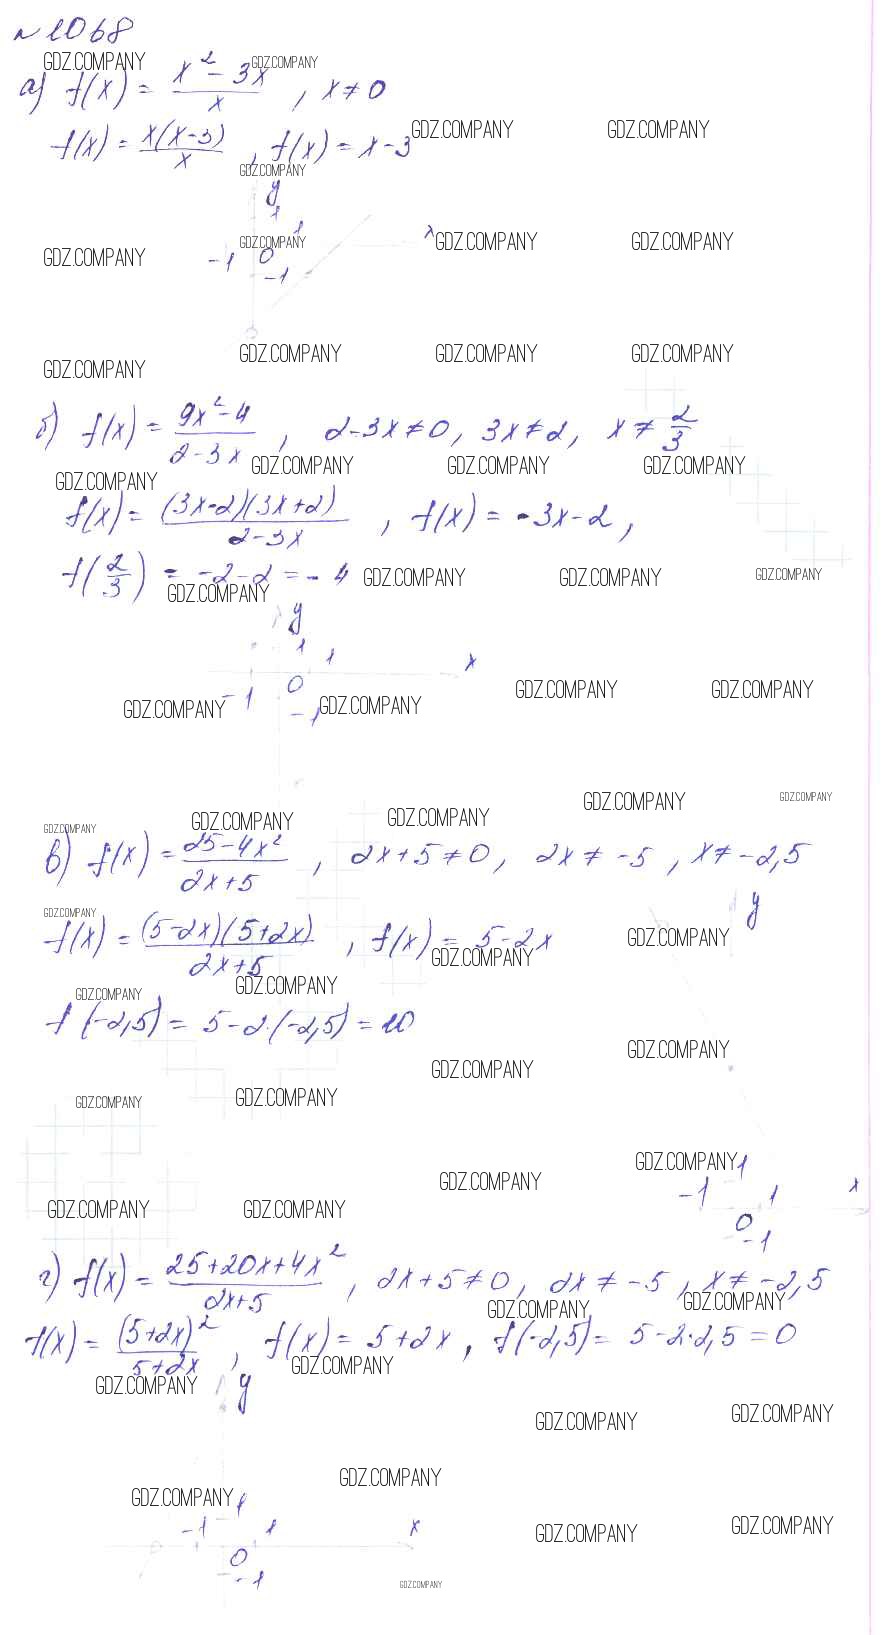 №1068
GDZ.COMPANY GDZ.COMPANY
а) f(x) = (x² - 3x)/x , x ≠ 0
GDZ.COMPANY GDZ.COMPANY
f(x) = x(x-3)/x , f(x) = x - 3
GDZ.COMPANY
y
1
1
GDZ.COMPANY GDZ.COMPANY GDZ.COMPANY GDZ.COMPANY
-1 0 x
-1
GDZ.COMPANY GDZ.COMPANY GDZ.COMPANY GDZ.COMPANY
б) f(x) = (9x² - 4)/(2 - 3x) , 2 - 3x ≠ 0, 3x ≠ 2, x ≠ 2/3
GDZ.COMPANY GDZ.COMPANY GDZ.COMPANY GDZ.COMPANY
f(x) = (3x-2)(3x+2)/(2-3x) , f(x) = -3x - 2 ,
f(2/3) = -2-2 = -4
GDZ.COMPANY GDZ.COMPANY GDZ.COMPANY GDZ.COMPANY
y
1 1 x
-1 0
-1
GDZ.COMPANY GDZ.COMPANY GDZ.COMPANY GDZ.COMPANY
GDZ.COMPANY GDZ.COMPANY GDZ.COMPANY GDZ.COMPANY GDZ.COMPANY
в) f(x) = (25 - 4x²)/(2x + 5) , 2x + 5 ≠ 0, 2x ≠ -5 , x ≠ -2,5
y
GDZ.COMPANY GDZ.COMPANY
f(x) = (5-2x)(5+2x)/(2x+5) , f(x) = 5 - 2x
GDZ.COMPANY GDZ.COMPANY GDZ.COMPANY
f(-2,5) = 5 - 2·(-2,5) = 10
GDZ.COMPANY GDZ.COMPANY
GDZ.COMPANY GDZ.COMPANY
GDZ.COMPANY GDZ.COMPANY 1
-1 1 x
GDZ.COMPANY GDZ.COMPANY 0
-1
г) f(x) = (25+20x+4x²)/(2x+5) , 2x + 5 ≠ 0, 2x ≠ -5 , x ≠ -2,5
GDZ.COMPANY GDZ.COMPANY
f(x) = (5+2x)²/(5+2x) , f(x) = 5 + 2x , f(-2,5) = 5 - 2·2,5 = 0
GDZ.COMPANY GDZ.COMPANY
y
GDZ.COMPANY GDZ.COMPANY
GDZ.COMPANY GDZ.COMPANY
1
-1 1 x
GDZ.COMPANY GDZ.COMPANY
0
-1
GDZ.COMPANY